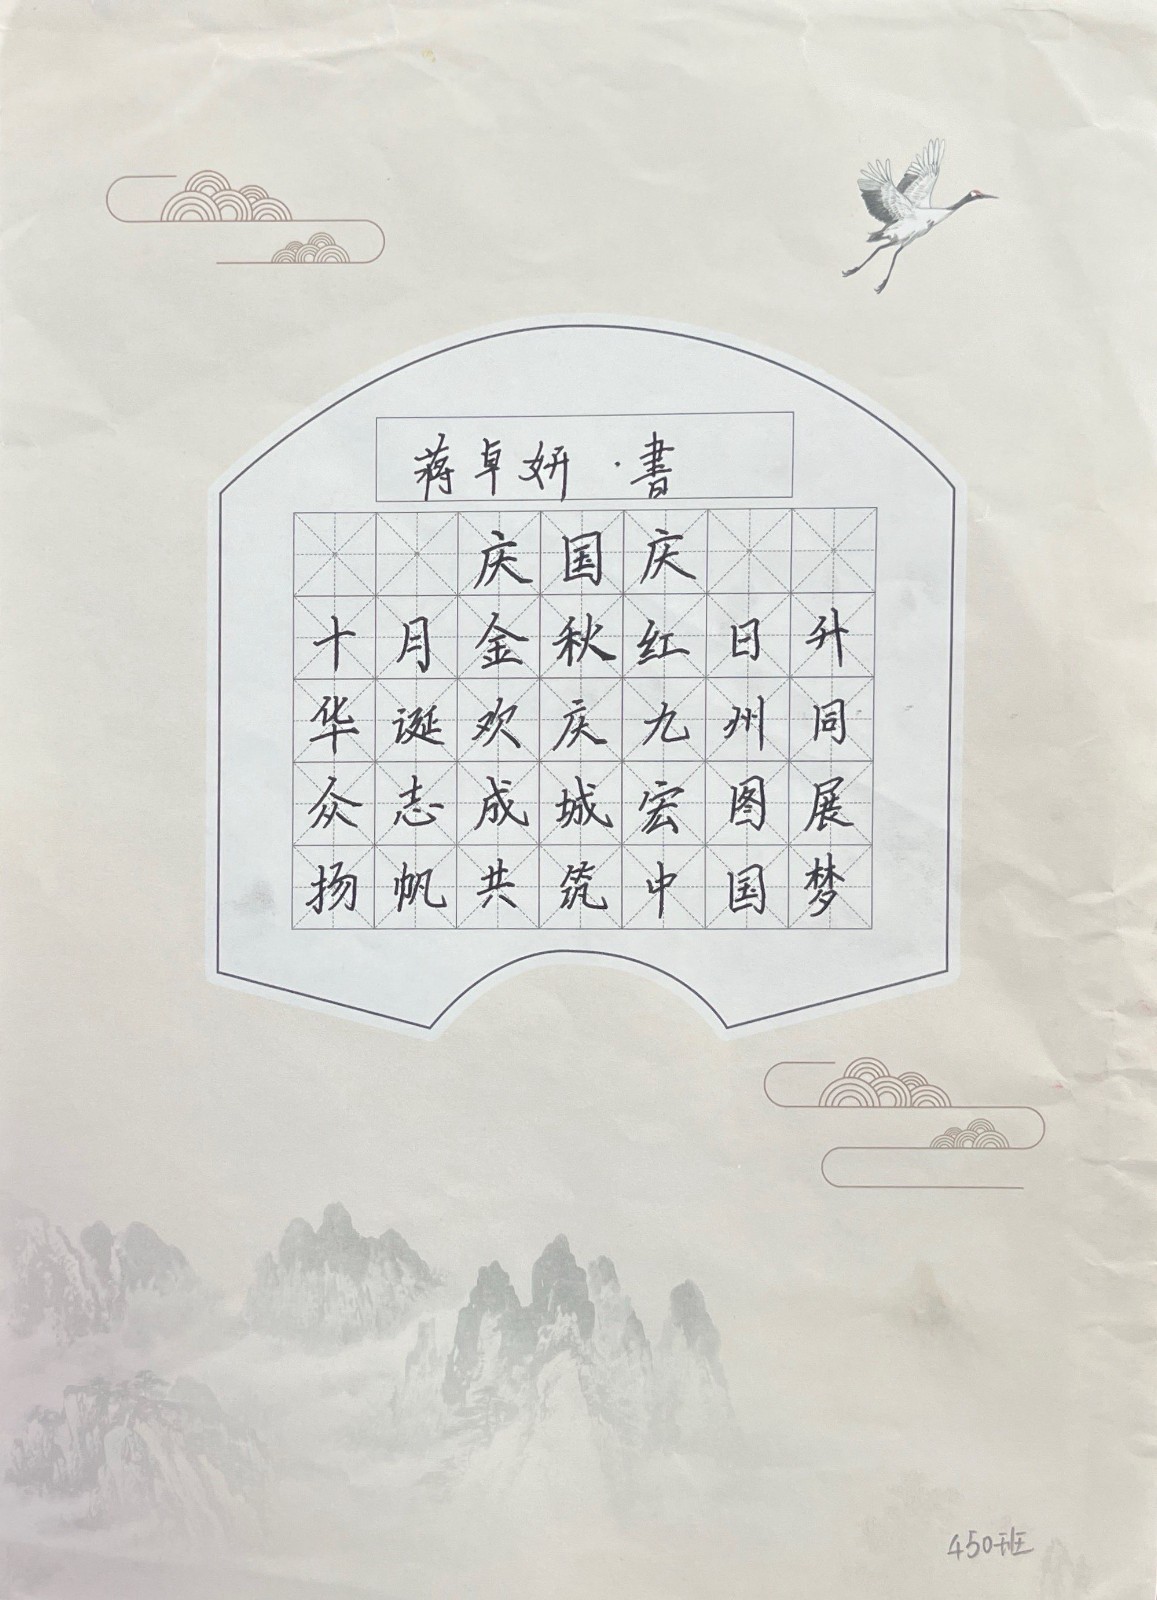 蒋卓妍·書
庆国庆
十月金秋红日升
华诞欢庆九州同
众志成城宏图展
扬帆共筑中国梦
450班